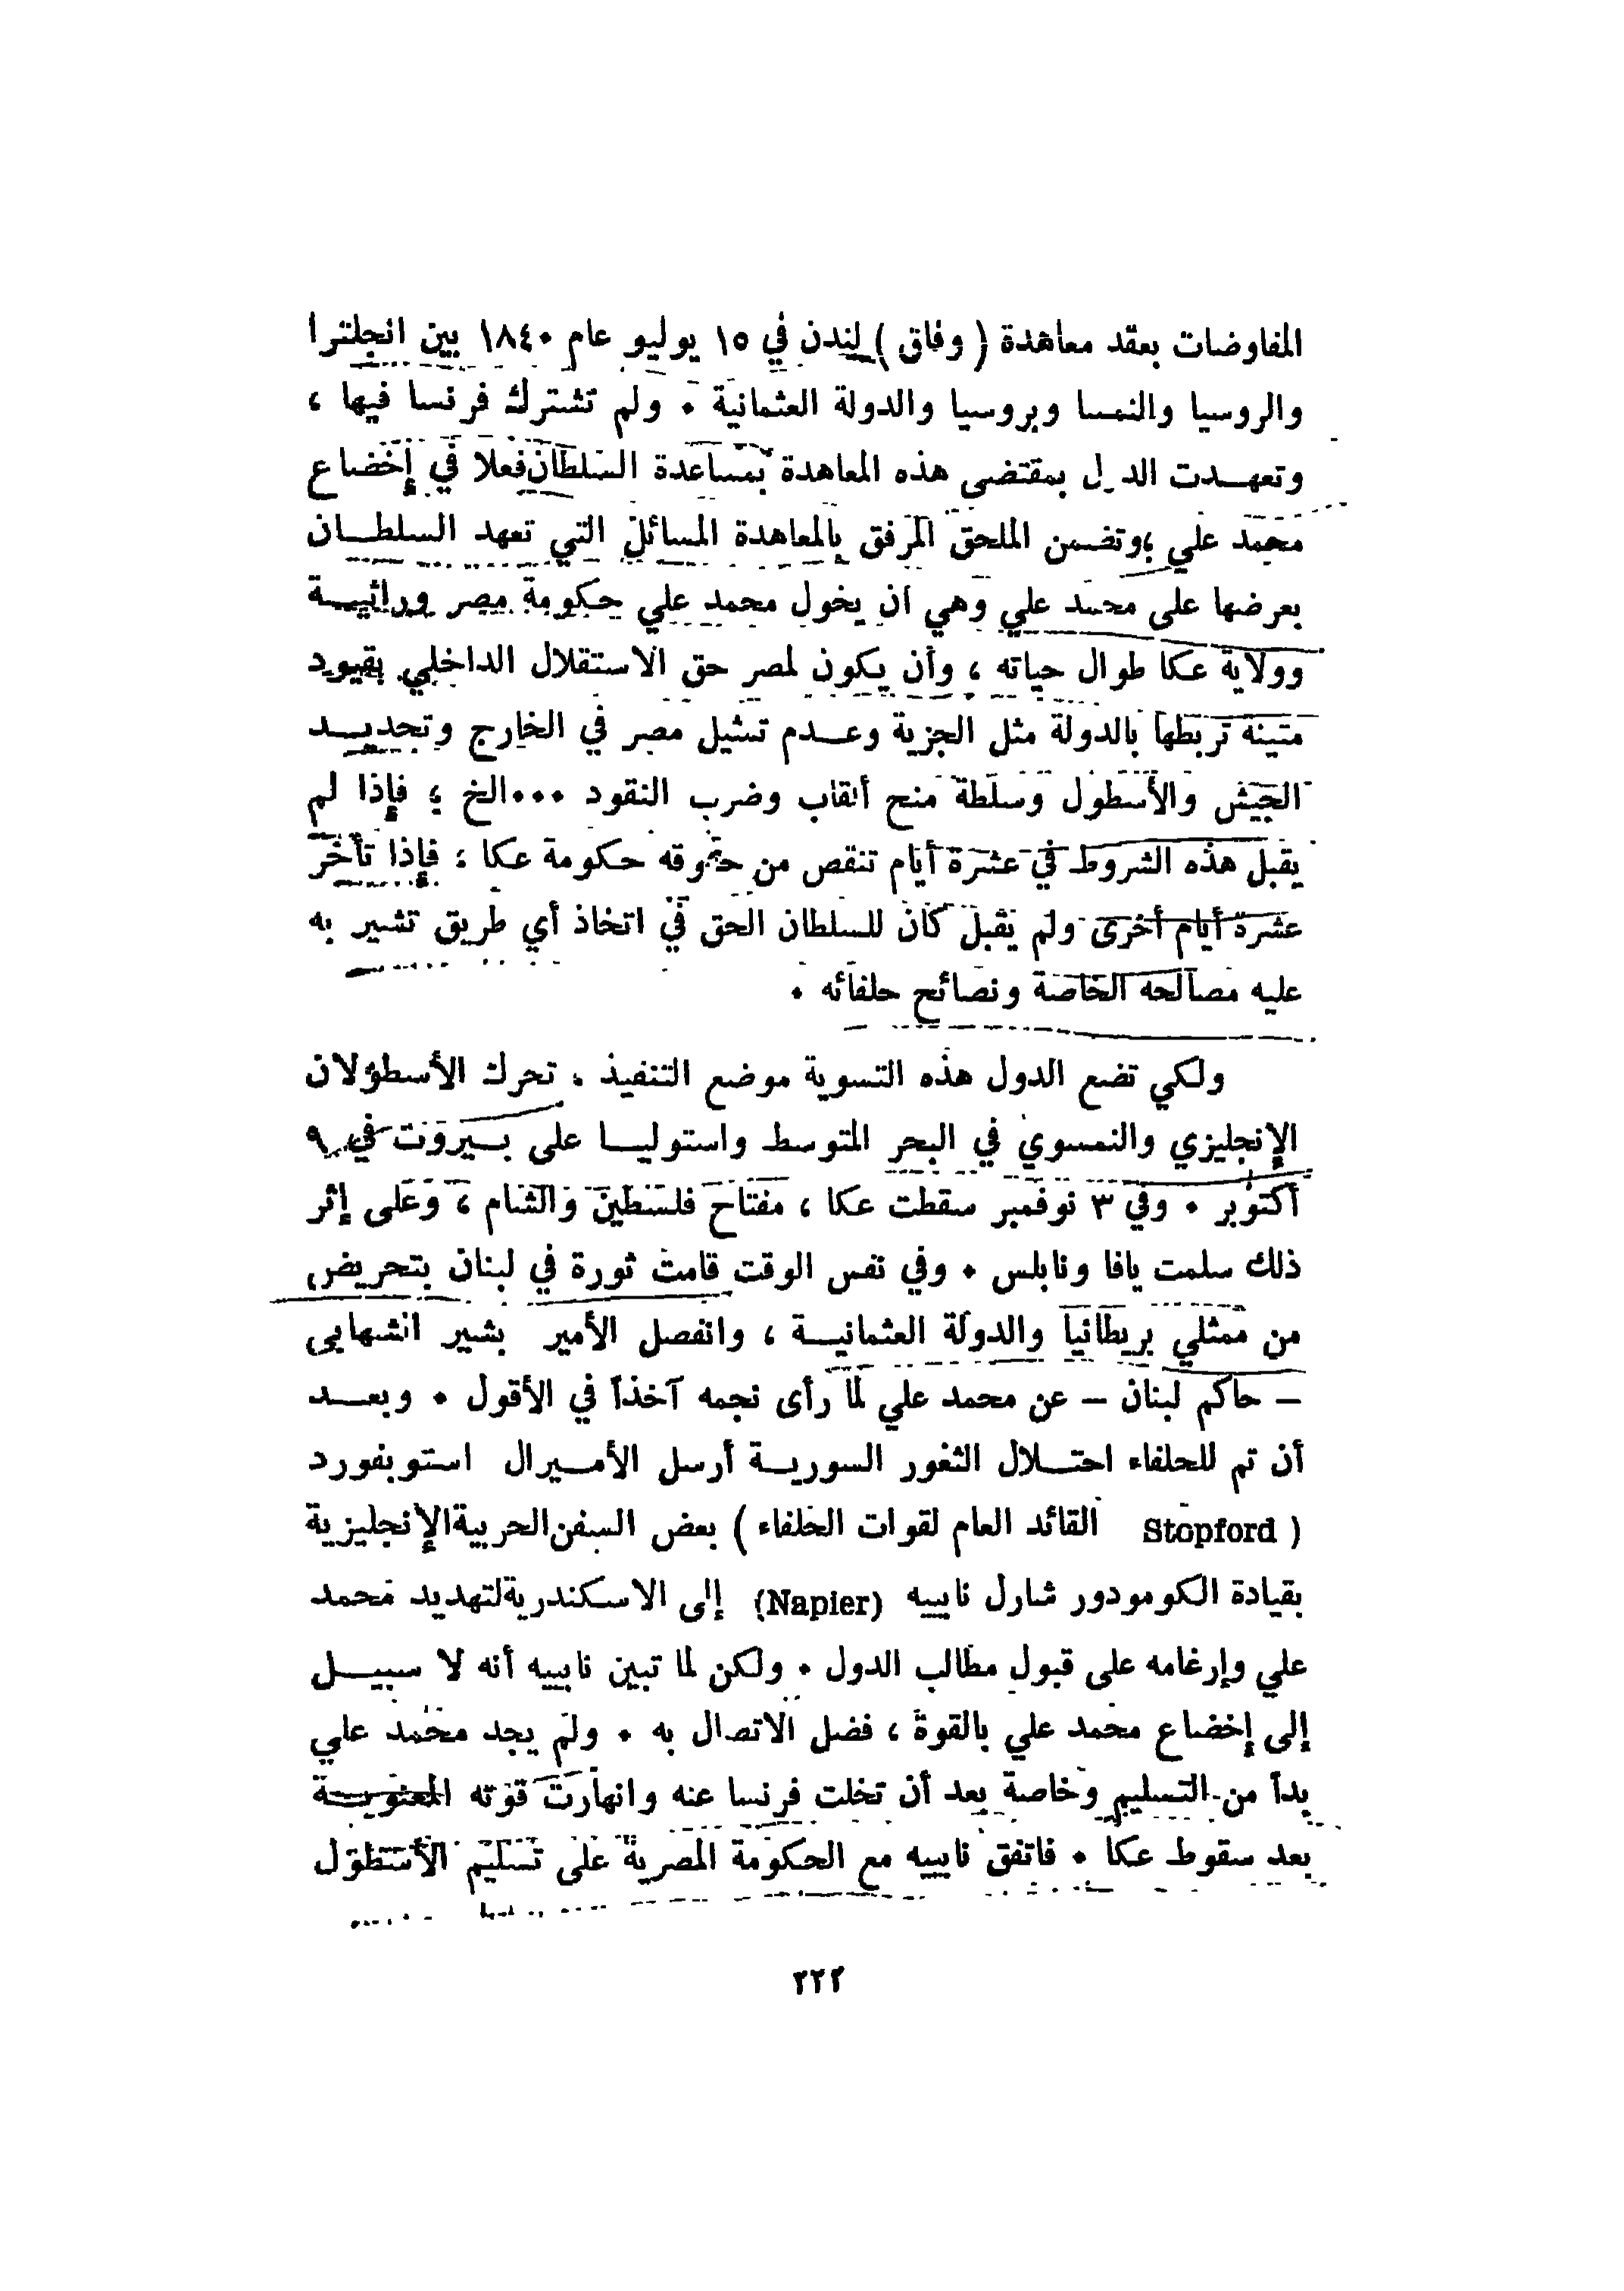 المفاوضات بعقد معاهدة ( وفاق ) لندن في ١٥ يوليو عام ١٨٤٠ بين انجلترا
والروسيا والنمسا وبروسيا والدولة العثمانية . ولم تشترك فرنسا فيها ،
وتعهدت الدول بمقتضى هذه المعاهدة بمساعدة السلطان فعلا في إخضاع
محمد علي ، وتضمن الملحق المرفق بالمعاهدة المسائل التي تعهد السلطان
بعرضها على محمد علي وهي أن يخول محمد علي حكومة مصر وراثية
وولاية عكا طوال حياته ، وأن يكون لمصر حق الاستقلال الداخلي بقيود
متينة تربطها بالدولة مثل الجزية وعدم تمثيل مصر في الخارج وتحديد
الجيش والأسطول وسلطة منح ألقاب وضرب النقود ...الخ ؛ فإذا لم
يقبل هذه الشروط في عشرة أيام تنقص من حقوقه حكومة عكا ؛ فإذا تأخر
عشرة أيام أخرى ولم يقبل كان للسلطان الحق في اتخاذ أي طريق تشير به
عليه مصالحه الخاصة ونصائح حلفائه .
ولكي تضع الدول هذه التسوية موضع التنفيذ ، تحرك الأسطولان
الإنجليزي والنمسوي في البحر المتوسط واستوليا على بيروت في ٩
أكتوبر . وفي ٣ نوفمبر سقطت عكا ، مفتاح فلسطين والشام ، وعلى إثر
ذلك سلمت يافا ونابلس . وفي نفس الوقت قامت ثورة في لبنان بتحريض
من ممثلي بريطانيا والدولة العثمانية ، وانفصل الأمير بشير الشهابي
– حاكم لبنان – عن محمد علي لما رأى نجمه آخذاً في الأقول . وبعد
أن تم للحلفاء احتلال الثغور السورية أرسل الأميرال استوبفورد
( Stopford القائد العام لقوات الحلفاء ) بعض السفن الحربية الإنجليزية
بقيادة الكومودور شارل نابييه (Napier) إلى الاسكندرية لتهديد محمد
علي وإرغامه على قبول مطالب الدول . ولكن لما تبين نابييه أنه لا سبيل
إلى إخضاع محمد علي بالقوة ، فضل الاتصال به . ولم يجد محمد علي
بداً من التسليم وخاصة بعد أن تخلت فرنسا عنه وانهارت قوته المعنوية
بعد سقوط عكا . فاتفق نابييه مع الحكومة المصرية على تسليم الأسطول
٢٢٢